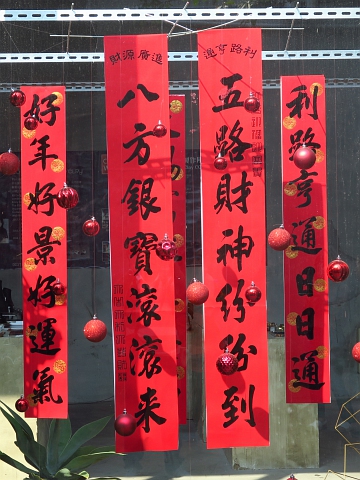 利路亨通日日通
利路亨通
五路財神紛紛到
財源廣進
八方銀寶滾滾来
好年好景好運氣